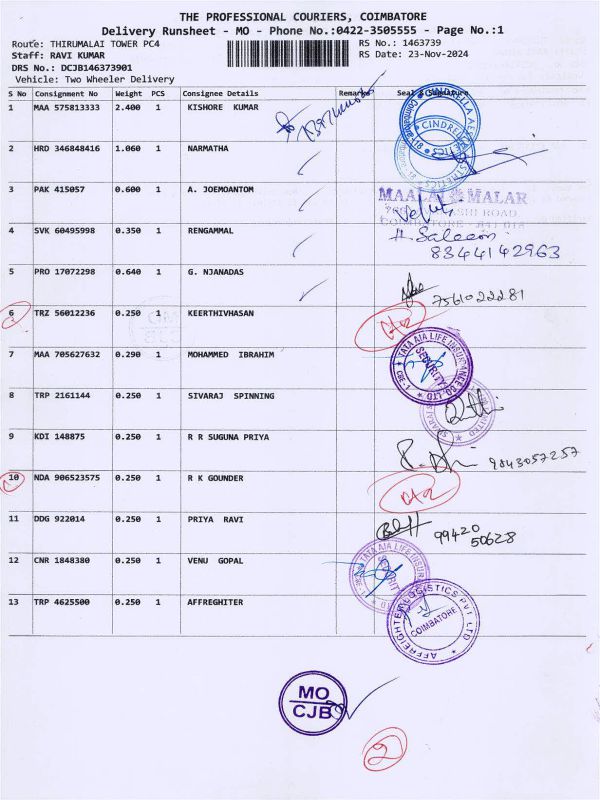 THE PROFESSIONAL COURIERS, COIMBATORE
Delivery Runsheet - MO - Phone No.:0422-3505555 - Page No.:1
Route: THIRUMALAI TOWER PC4
RS No.: 1463739
Staff: RAVI KUMAR
RS Date: 23-Nov-2024
DRS No.: DCJB146373901
Vehicle: Two Wheeler Delivery
S No Consignment No Weight PCS Consignee Details Remarks Seal & Signature
1 MAA 575813333 2.400 1 KISHORE KUMAR
CINDRELLA
2 HRD 346848416 1.060 1 NARMATHA
3 PAK 415057 0.600 1 A. JOEMOANTOM
MAALAI MALAR
ROAD
4 SVK 60495998 0.350 1 RENGAMMAL
H. Saleem
8344142963
5 PRO 17072298 0.640 1 G. NJANADAS
7561022281
6 TRZ 56012236 0.250 1 KEERTHIVHASAN
7 MAA 705627632 0.290 1 MOHAMMED IBRAHIM
TATA AIA LIFE INSURANCE CO. LTD
SECURITY
CBE-1
8 TRP 2161144 0.250 1 SIVARAJ SPINNING
9 KDI 148875 0.250 1 R R SUGUNA PRIYA
9843057257
10 NDA 906523575 0.250 1 R K GOUNDER
11 DDG 922014 0.250 1 PRIYA RAVI
99420
50628
12 CNR 1848380 0.250 1 VENU GOPAL
TATA AIA LIFE
13 TRP 4625500 0.250 1 AFFREGHITER
LOGISTICS PVT LTD
COIMBATORE
MO
CJB
2